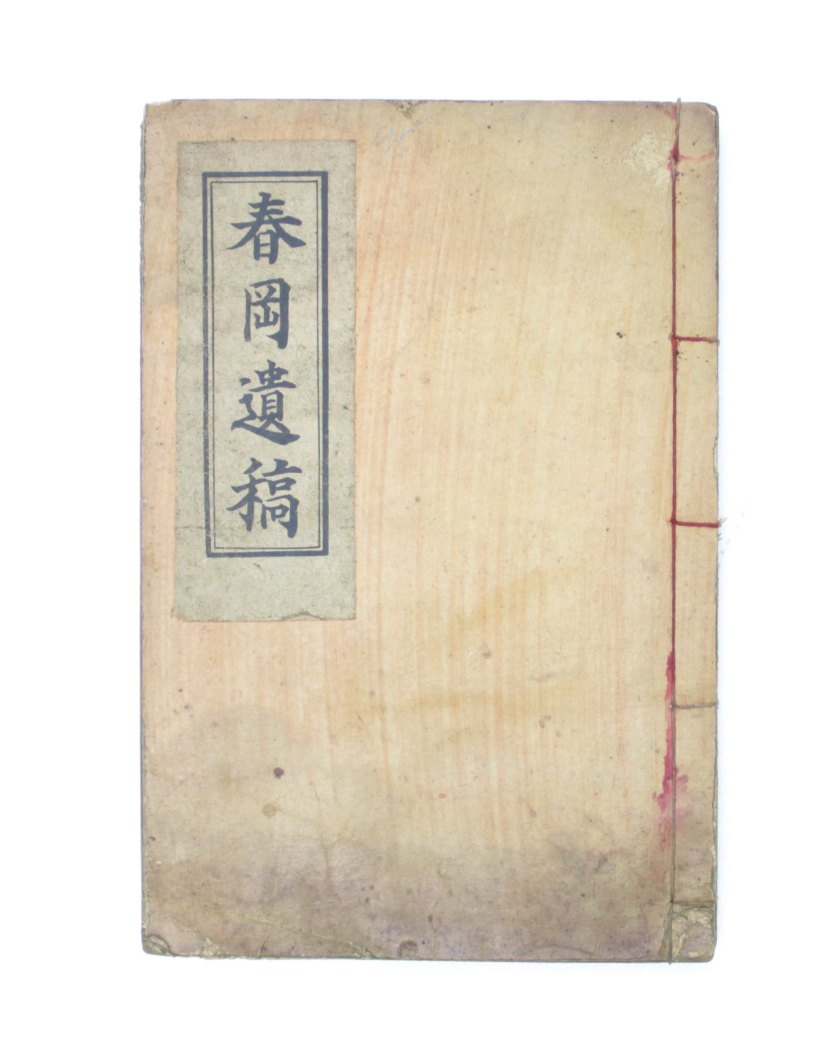 春岡遺稿